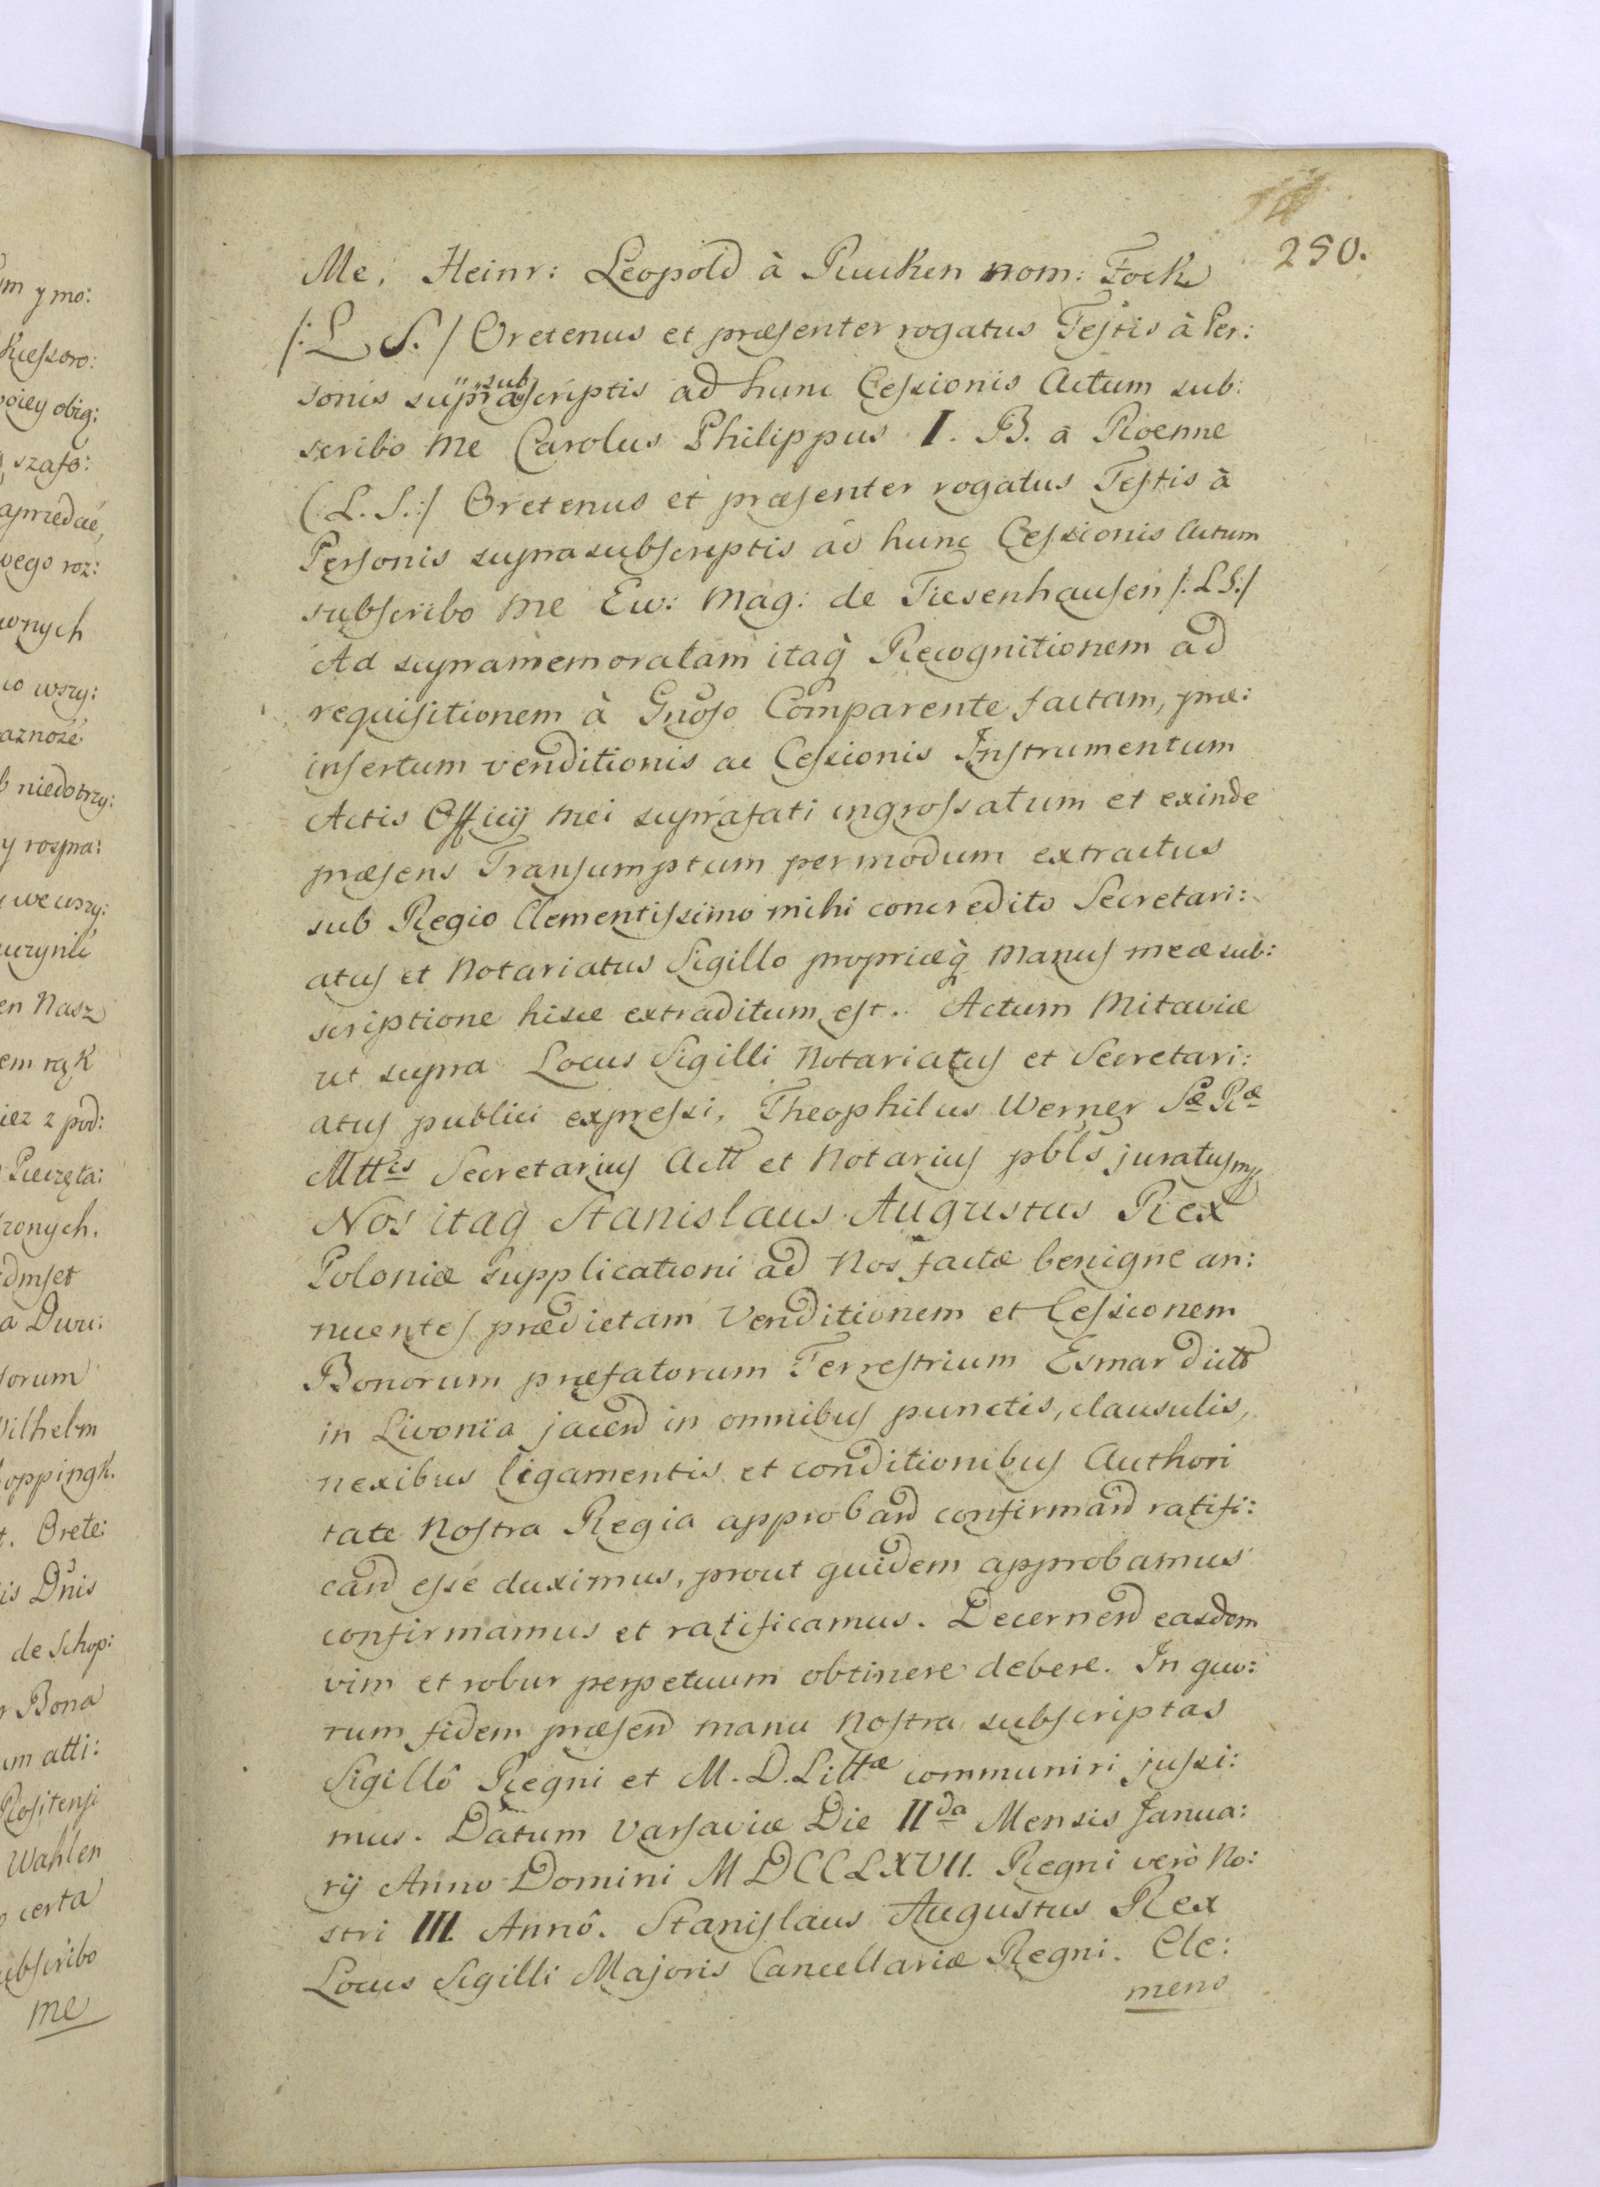 250.
Me, Heinr: Leopold à Ruuken nom: Fock
/: L S. / Oretenus et præsenter rogatus Testis à Per:
sonis supra sub scriptis ad hunc Cessionis Actum sub:
scribo me Carolus Philippus I. B. a Roenne
(: L. S.:/ Oretenus et præsenter rogatus Testis à
Personis suprasubscriptis ad hunc Cessionis Actum
subscribo me Ew: Mag: de Tiesenhausen /: L S:/
Ad supramemoratam itaq̀ Recognitionem ad
requisitionem à Gnoso Comparente factam, præ:
insertum venditionis ac Cessionis Instrumentum
Actis Officij mei suprafati ingrossatum et exinde
præsens Transumptum per modum extractus
sub Regio Clementissimo mihi concredito Secretari:
atus et Notariatus Sigillo propriæq̀ Manus meæ sub:
scriptione hisce extraditum est. Actum Mitaviæ
ut supra Locus Sigilli Notariatus et Secretari:
atus publici expressi, Theophilus Werner Sæ Ræ
Mttis Secretarius Actt et Notarius pbls juratus mp
Nos itaq Stanislaus Augustus Rex
Poloniæ supplicationi ad Nos factæ benigne an:
nuentes prædictam Venditionem et Cessionem
Bonorum præfatorum Terrestrium Esmar dictt
in Livonia jacend in omnibus punctis, clausulis,
nexibus ligamentis et conditionibus Authori
tate Nostra Regia approband confirmand ratifi:
cand esse duximus, prout quidem approbamus
confirmamus et ratificamus. Decernend easdem
vim et robur perpetuum obtinere debere. In quo:
rum fidem præsend manu Nostra subscriptas
Sigillô Regni et M. D. Littæ communiri jussi:
mus. Datum Varsaviæ Die IIda Mensis Janua:
rij Anno Domini MDCCLXVII. Regni verò No:
stri III Annô. Stanislaus Augustus Rex
Locus Sigilli Majoris Cancellariæ Regni. Cle:
mens
ym y mo:
szafo:
wego roz:
wonych
co wszy:
b niedotrzy:
y rospra:
y we wszy:
uczynili
en Nasz
em rąk
iez z pod:
Pieczęta:
zonych.
a Duru:
sorum
Wilhelm
oppingk.
t. Orete:
is Dnis
de Schop:
r Bona
um atti:
Rositensi
Wahlen
certa
ubscribo
me